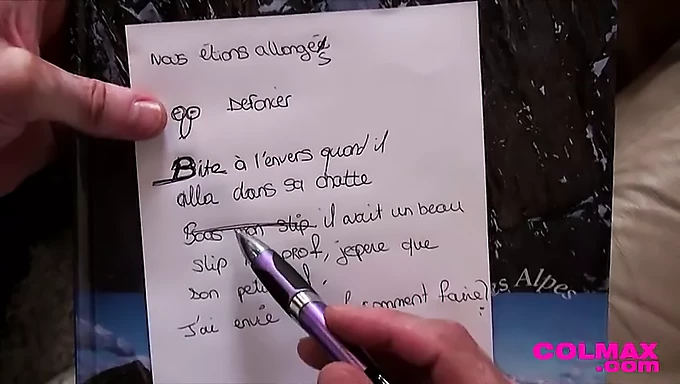 Nous étions allongés
Defoncer
Bite à l'envers quand il
alla dans sa chatte
slip il avait un beau
slip prof, j'epere que
son petit
J'ai envie comment faire?
es Alpes
COLMAX
.com